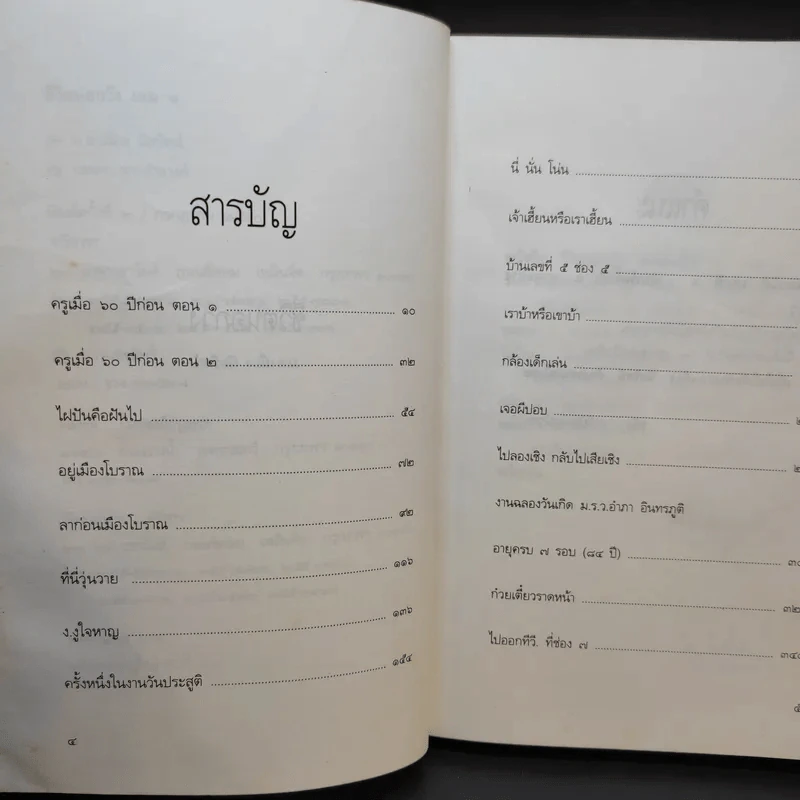 สารบัญ
ครูเมื่อ ๖๐ ปีก่อน ตอน ๑ ๑๐
ครูเมื่อ ๖๐ ปีก่อน ตอน ๒ ๓๒
ไฝปันคือฝันไป ๕๔
อยู่เมืองโบราณ ๗๒
ลาก่อนเมืองโบราณ ๙๒
ที่นี่วุ่นวาย ๑๑๖
ง.งูใจหาญ ๑๓๖
ครั้งหนึ่งในงานวันประสูติ ๑๕๔
๔
นี่ นั่น โน่น
เจ้าเฮี้ยนหรือเราเฮี้ยน
บ้านเลขที่ ๕ ช่อง ๕
เราบ้าหรือเขาบ้า
กล้องเด็กเล่น
เจอผีปอบ
ไปลองเชิง กลับไปเสียเชิง
งานฉลองวันเกิด ม.ร.ว.อำภา อินทรภูติ
อายุครบ ๗ รอบ (๘๔ ปี)
ก๋วยเตี๋ยวราดหน้า
ไปออกทีวี. ที่ช่อง ๗
๕